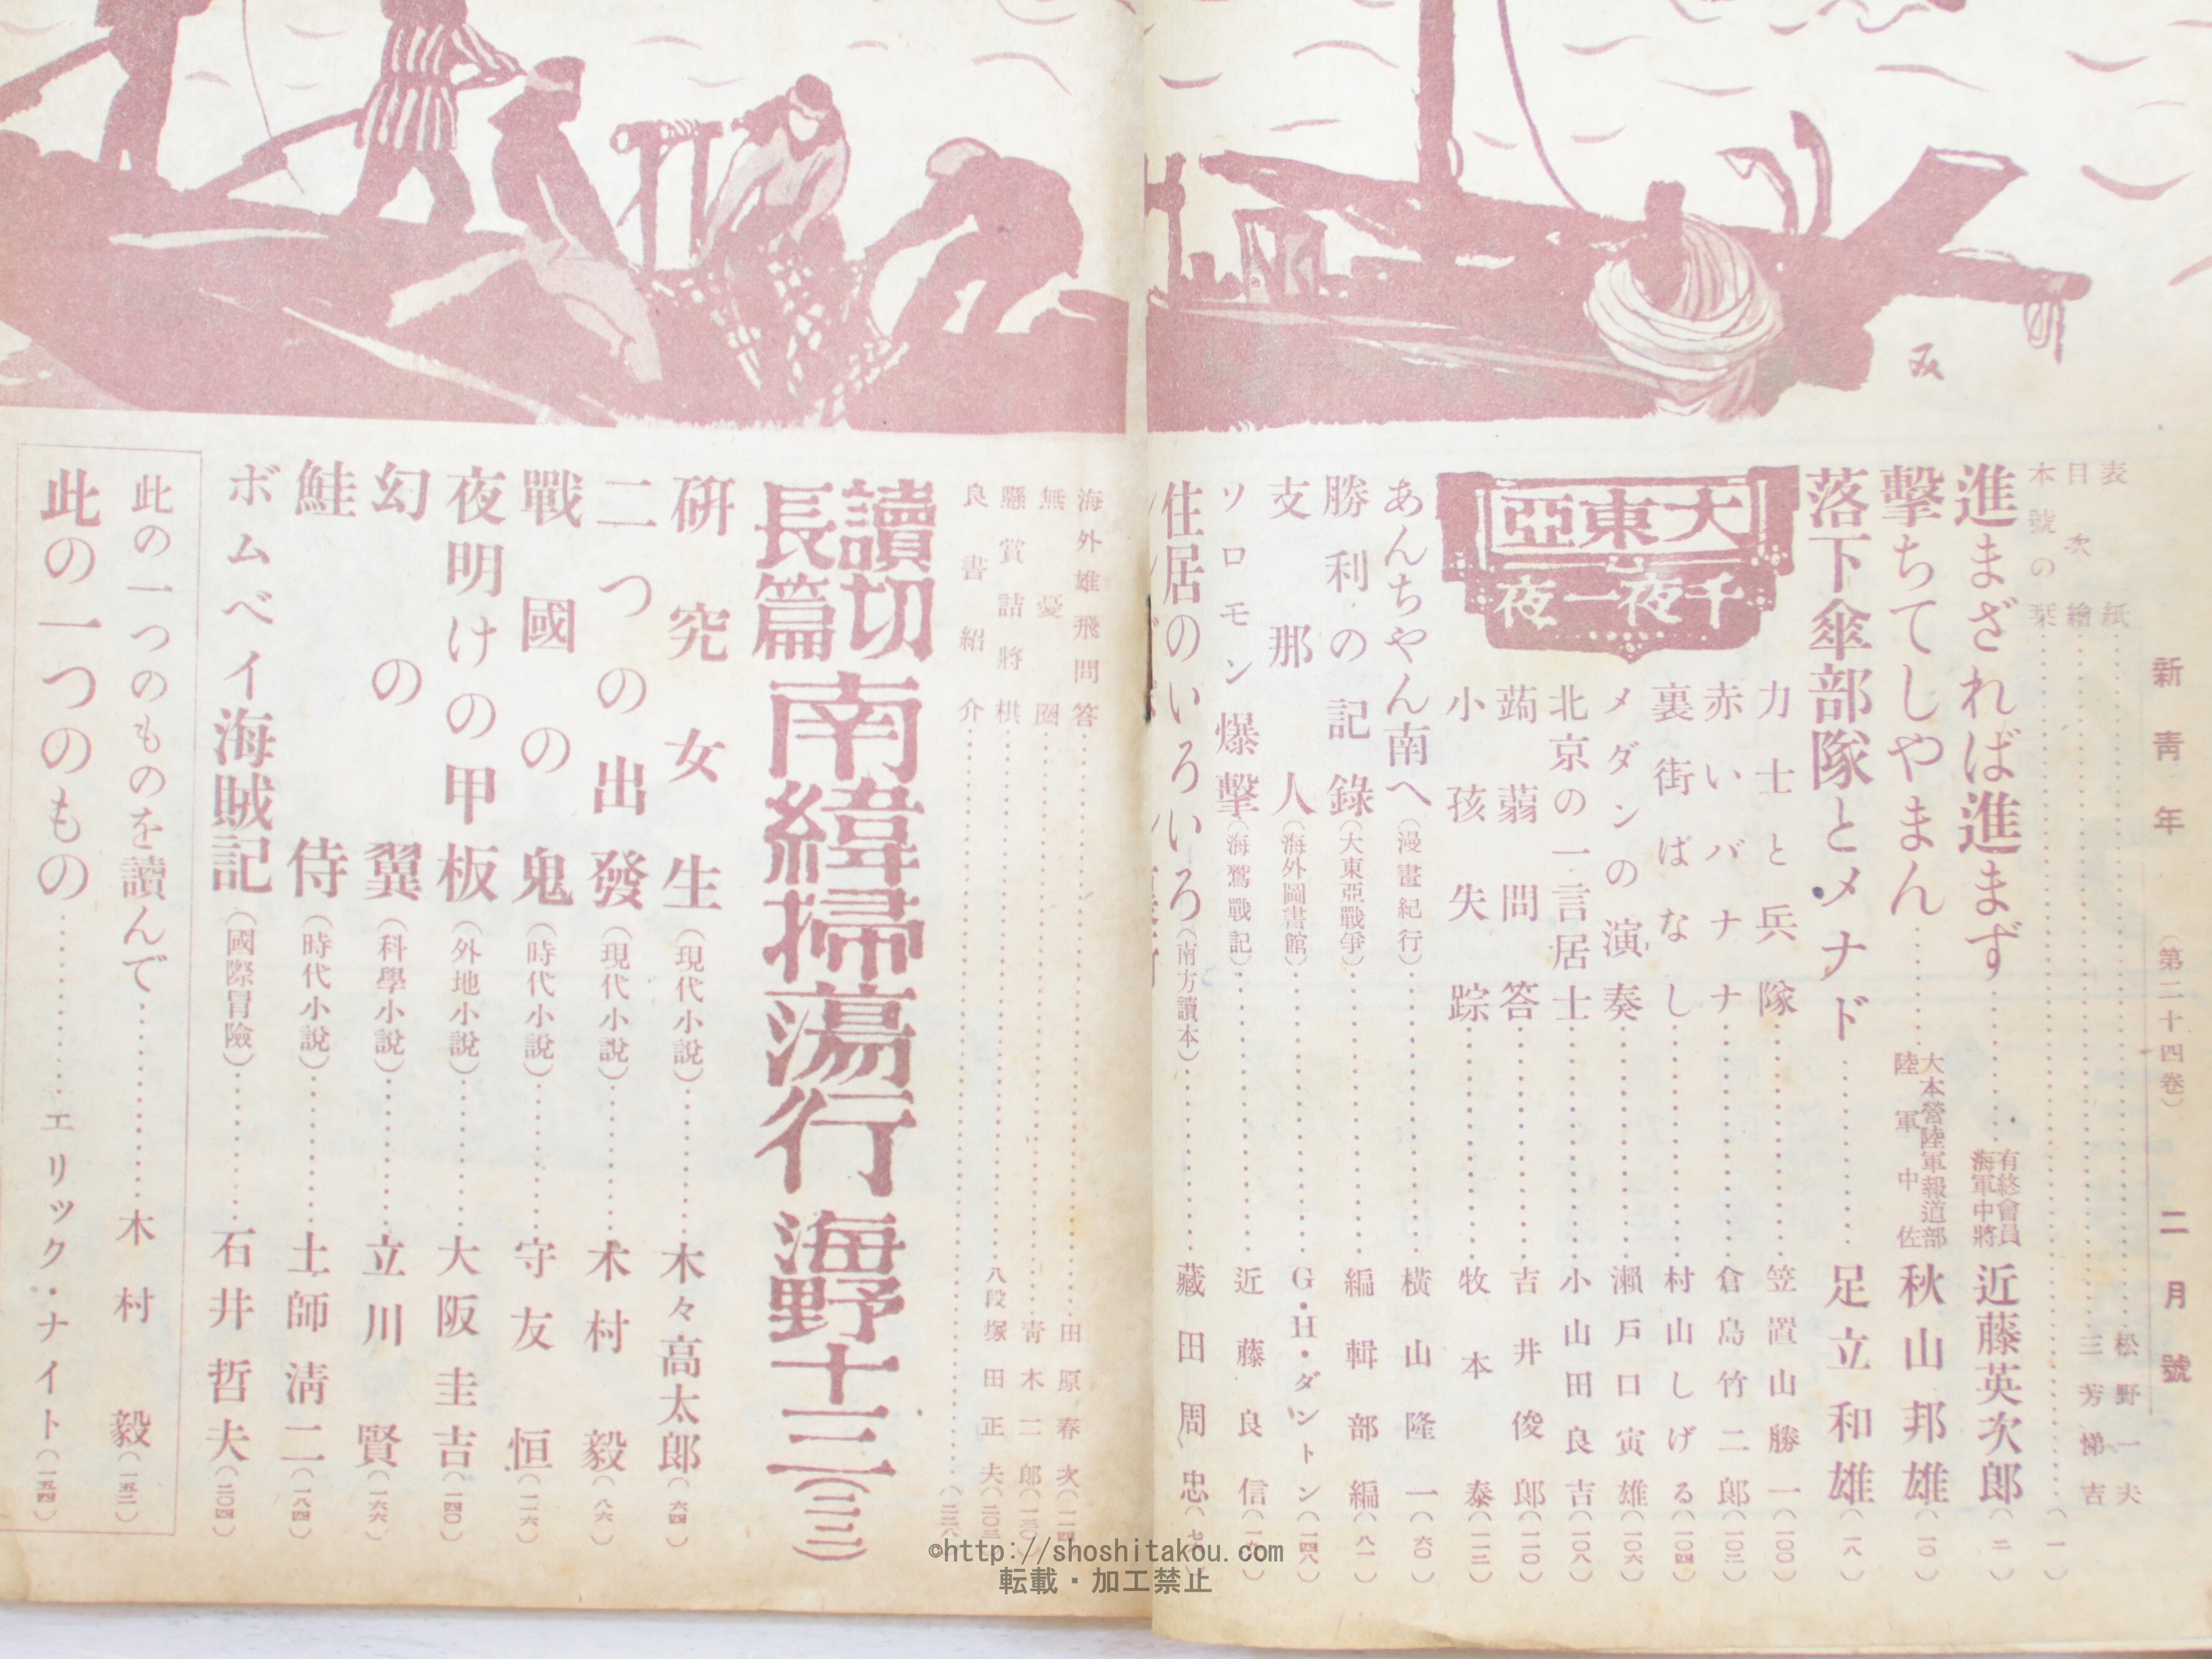 新青年（第二十四卷）二月號
表紙……松野一夫
目次繪……三芳悌吉
本號の栞……（一）
進まざれば進まず……有終會員海軍中將 近藤英次郎（二）
擊ちてしやまん……大本營陸軍報道部陸軍中佐 秋山邦雄（一〇）
落下傘部隊とメナド……足立和雄（一八）
大東亞
千夜一夜
力士と兵隊……笠置山勝一（一〇〇）
赤いバナナ……倉島竹二郎（一〇二）
裏街ばなし……村山しげる（一〇四）
メダンの演奏……瀨戶口寅雄（一〇六）
北京の一言居士……小山田良吉（一〇八）
蒟蒻問答……吉井俊郎（一一〇）
小孩失踪……牧本泰（一一二）
あんちやん南へ（漫畫紀行）……橫山隆一（六〇）
勝利の記錄（大東亞戰爭）……編輯部編（八一）
支那人（海外圖書館）……G・H・ダントン（一四八）
ソロモン爆擊（海鷲戰記）……近藤良信
住居のいろいろ（南方讀本）……藏田周忠
海外雄飛問答……田原春次（一二四）
無憂圈……靑木二郎（一三〇）
懸賞詰將棋……八段塚田正夫（二〇三）
良書紹介……（二二八）
讀切長篇 南緯掃蕩行 海野十三（二二）
硏究女生（現代小說）……木々高太郎（六四）
二つの出發（現代小說）……木村毅（八六）
戰國の鬼（時代小說）……守友恒（一二六）
夜明けの甲板（外地小說）……大阪圭吉（一四〇）
幻の翼（科學小說）……立川賢（一六六）
鮭侍（時代小說）……土師淸二（一八四）
ボムベイ海賊記（國際冒險）……石井哲夫（二〇四）
此の一つのものを讀んで……木村毅（一五二）
此の一つのもの……エリック・ナイト（一五四）
©http://shoshitakou.com
転載・加工禁止